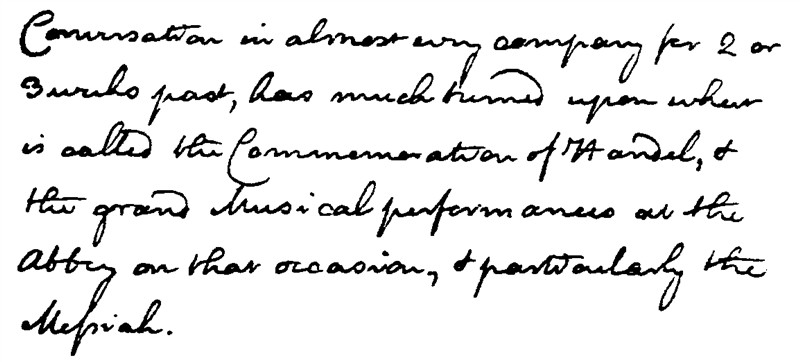 Conversation in almost every company for 2 or
3 weeks past, has much turned upon what
is called the Commemoration of Handel, &
the grand Musical performances at the
Abbey on that occasion, & particularly the
Messiah.